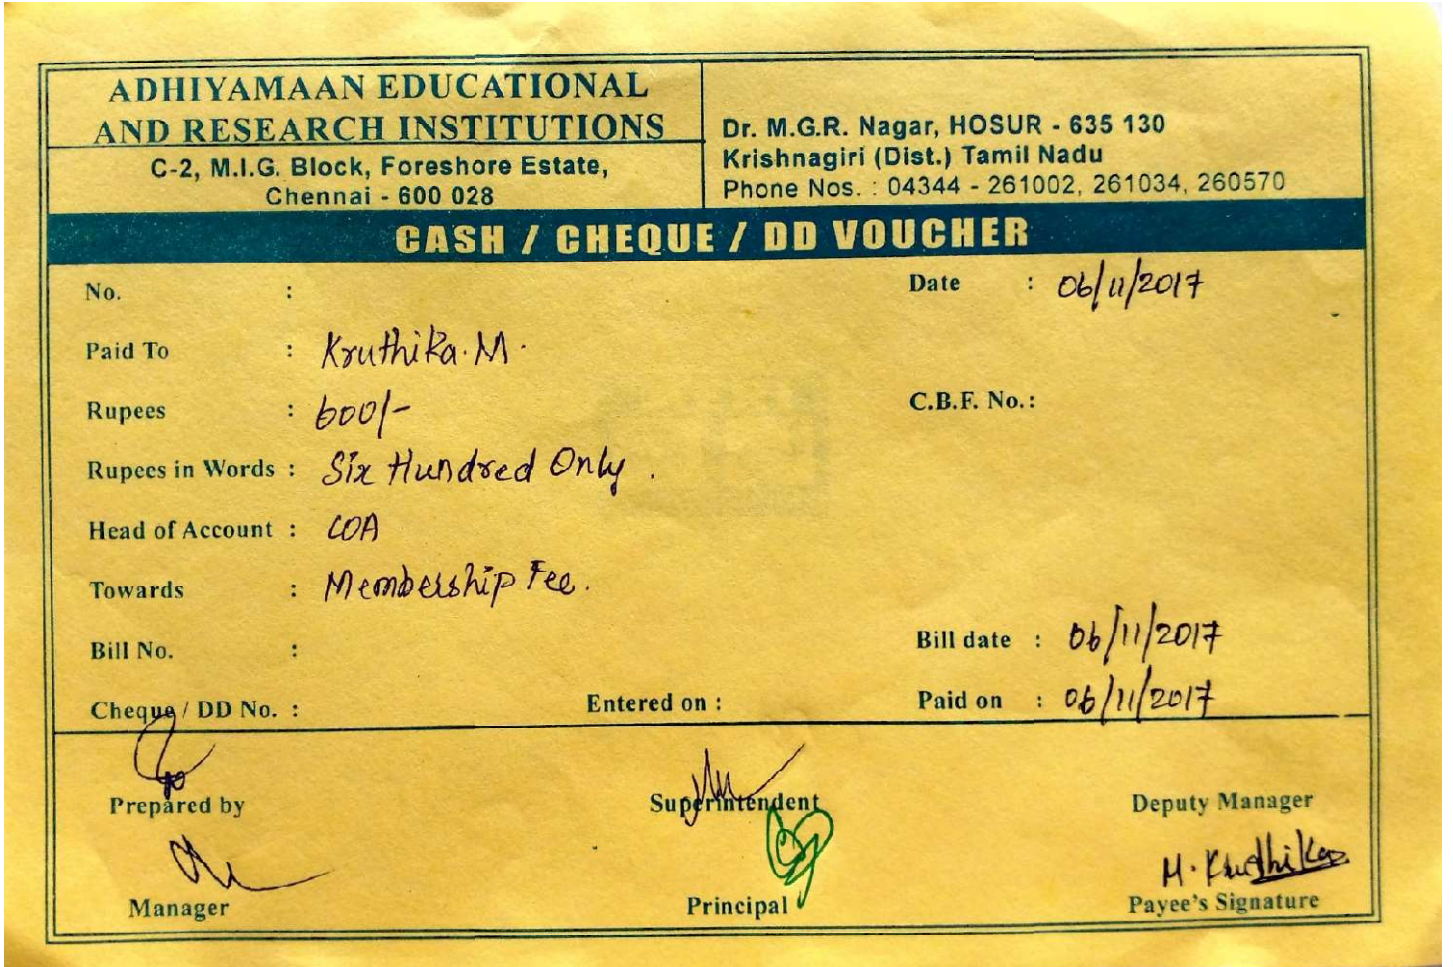 ADHIYAMAAN EDUCATIONAL
AND RESEARCH INSTITUTIONS
C-2, M.I.G. Block, Foreshore Estate,
Chennai - 600 028
Dr. M.G.R. Nagar, HOSUR - 635 130
Krishnagiri (Dist.) Tamil Nadu
Phone Nos. : 04344 - 261002, 261034, 260570
CASH / CHEQUE / DD VOUCHER
No. : Date : 06/11/2017
Paid To : Kruthika.M.
Rupees : 600/- C.B.F. No.:
Rupees in Words : Six Hundred Only.
Head of Account : COA
Towards : Membership Fee.
Bill No. : Bill date : 06/11/2017
Cheque / DD No. : Entered on : Paid on : 06/11/2017
Prepared by Superintendent Deputy Manager
M. Kruthika
Manager Principal Payee's Signature